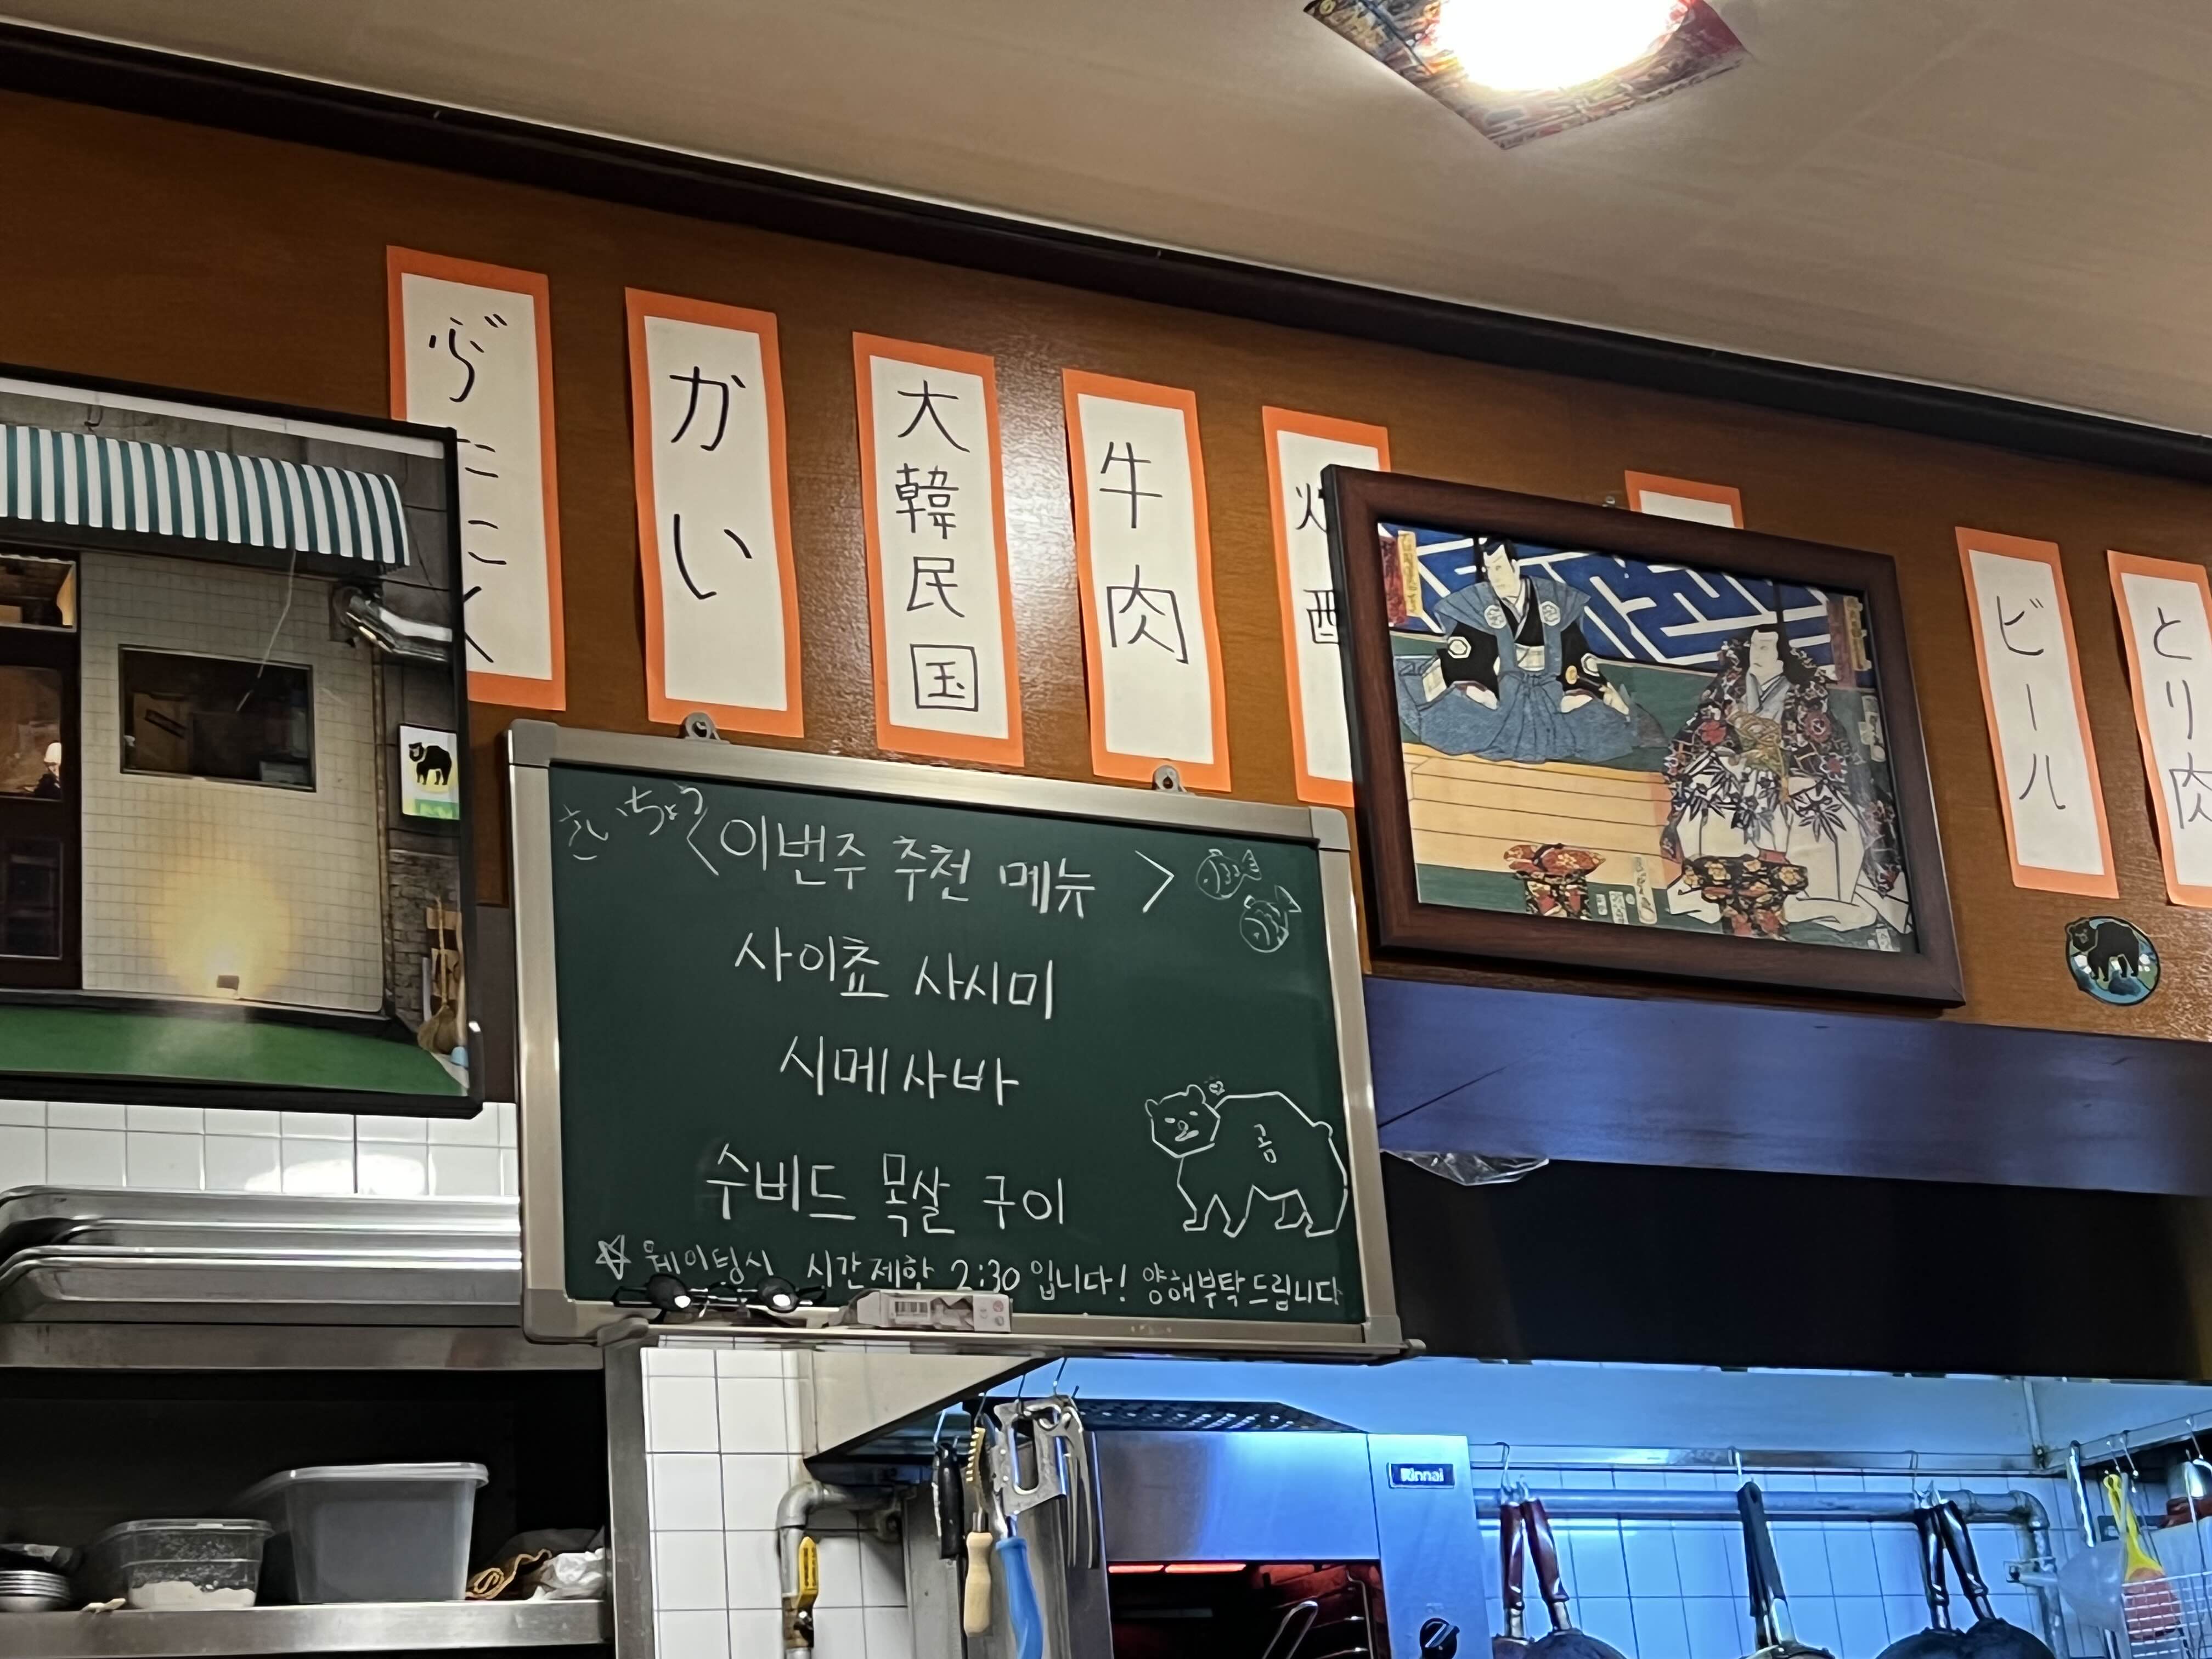 ぶたにく
かい
大韓民国
牛肉
ビール
とり肉
さいちょう
<이번주 추천 메뉴>
사이쵸 사시미
시메사바
수비드 목살 구이
곰
☆ 웨이팅시 시간제한 2:30 입니다! 양해부탁드립니다
Rinnai